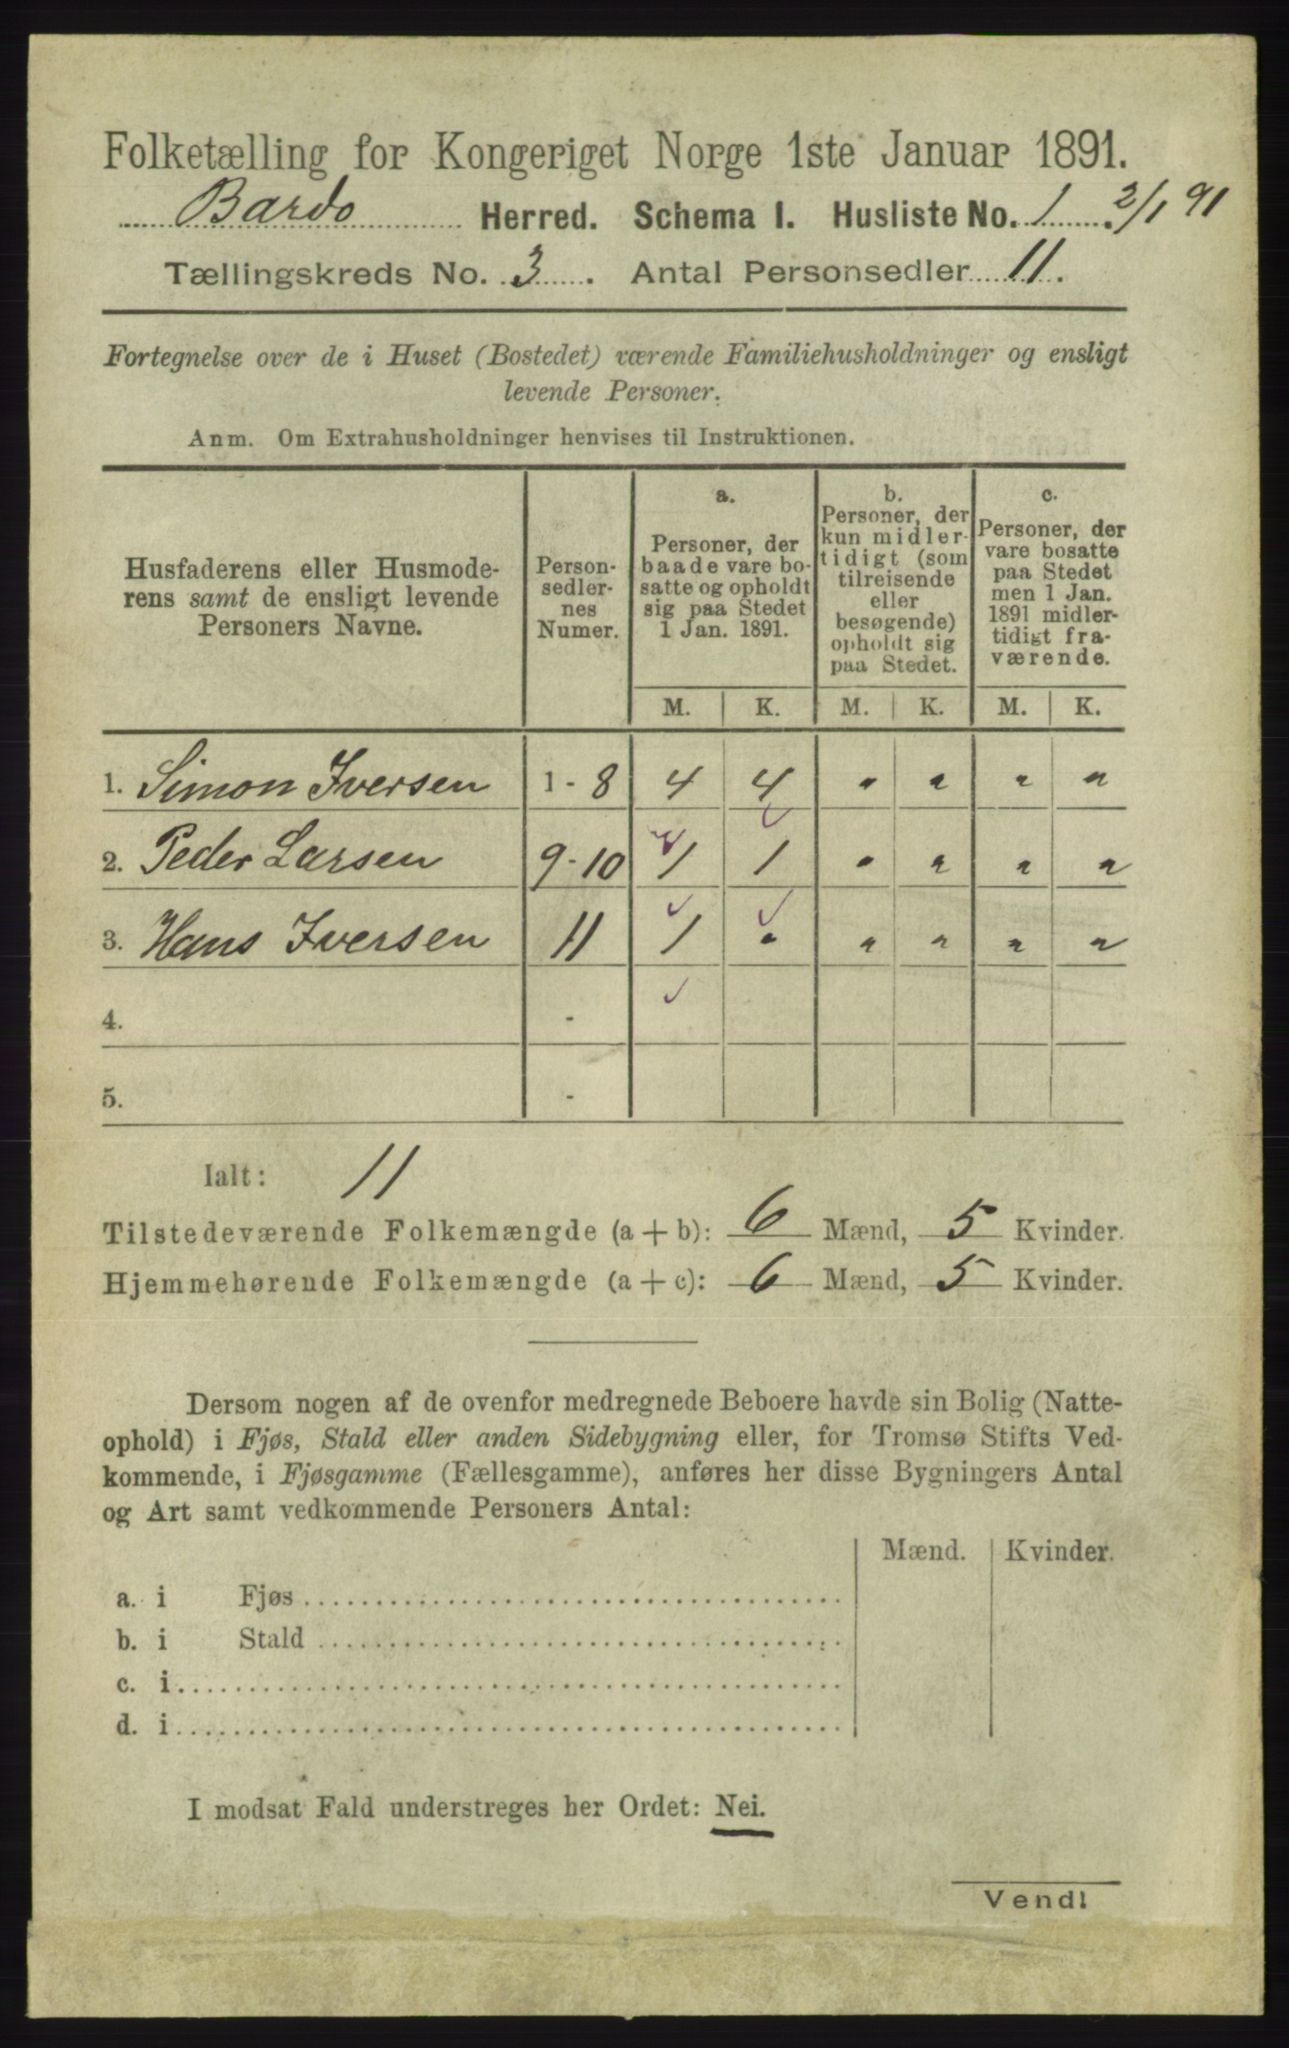 Folketælling for Kongeriget Norge 1ste Januar 1891.
Bardo Herred. Schema I. Husliste No. 1. 2/1 91
Tællingskreds No. 3. Antal Personsedler 11.
Fortegnelse over de i Huset (Bostedet) værende Familiehusholdninger og ensligt
levende Personer.
Anm. Om Extrahusholdninger henvises til Instruktionen.
Husfaderens eller Husmode-
rens samt de ensligt levende
Personers Navne.
Person-
sedler-
nes
Numer.
a.
Personer, der
baade vare bo-
satte og opholdt
sig paa Stedet
1 Jan. 1891.
b.
Personer, der
kun midler-
tidigt (som
tilreisende
eller
besøgende)
opholdt sig
paa Stedet.
c.
Personer, der
vare bosatte
paa Stedet
men 1 Jan.
1891 midler-
tidigt fra-
værende.
M. K. M. K. M. K.
1. Simon Iversen 1-8 4 4 " " " "
2. Peder Larsen 9-10 1 1 " " " "
3. Hans Iversen 11 1 " " " " "
4. -
5. -
Ialt: 11
Tilstedeværende Folkemængde (a + b): 6 Mænd, 5 Kvinder.
Hjemmehørende Folkemængde (a + c): 6 Mænd, 5 Kvinder.
Dersom nogen af de ovenfor medregnede Beboere havde sin Bolig (Natte-
ophold) i Fjøs, Stald eller anden Sidebygning eller, for Tromsø Stifts Ved-
kommende, i Fjøsgamme (Fællesgamme), anføres her disse Bygningers Antal
og Art samt vedkommende Personers Antal:
Mænd. Kvinder.
a. i Fjøs
b. i Stald
c. i
d. i
I modsat Fald understreges her Ordet: Nei.
Vend!